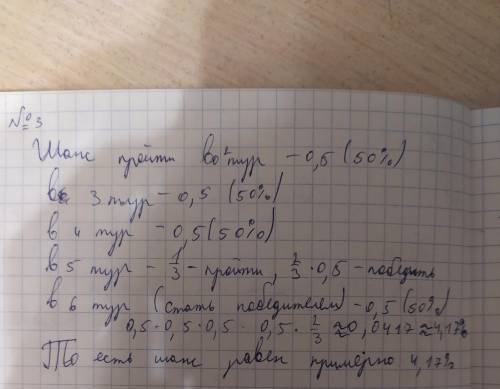 №3
Шанс пройти во 2 тур - 0,5 (50%)
в 3 тур - 0,5 (50%)
в 4 тур - 0,5 (50%)
в 5 тур - 1/3 - пройти, 1/3 · 0,5 - победить
в 6 тур (стать победителем) - 0,5 (50%)
0,5 · 0,5 · 0,5 · 0,5 · 1/3 ≈ 0,0417 ≈ 4,17%
То есть шанс равен примерно 4,17%